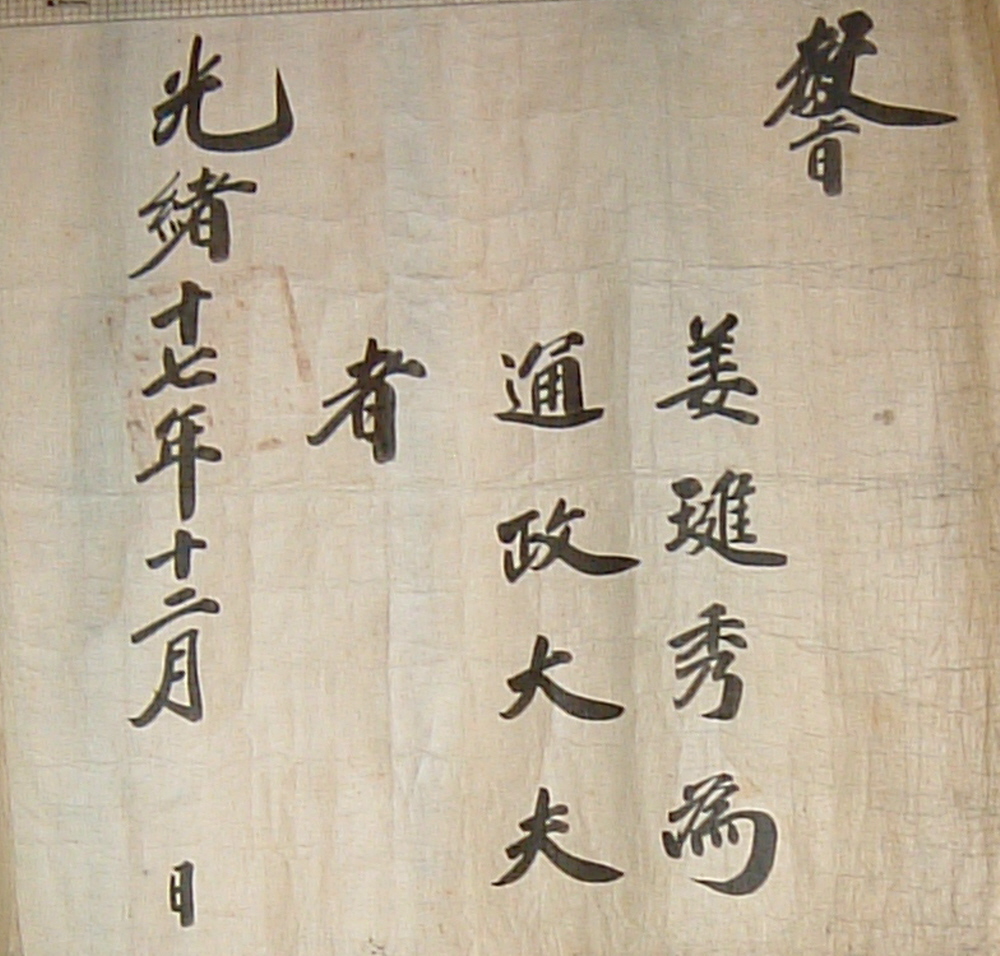 敎旨
姜璡秀爲
通政大夫
者
光緖十七年十二月 日